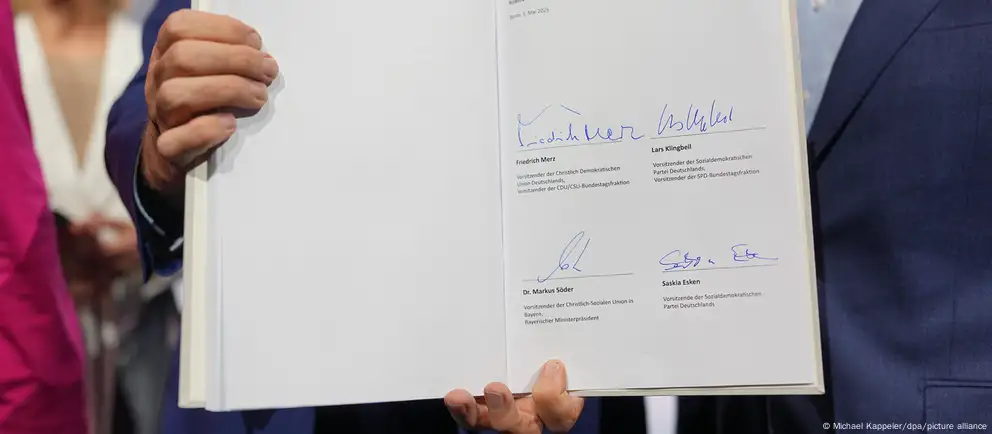 Berlin, 5. Mai 2025
Friedrich Merz
Lars Klingbeil
Friedrich Merz
Vorsitzender der Christlich Demokratischen
Union Deutschlands,
Vorsitzender der CDU/CSU-Bundestagsfraktion
Lars Klingbeil
Vorsitzender der Sozialdemokratischen
Partei Deutschlands,
Vorsitzender der SPD-Bundestagsfraktion
Saskia Esken
Dr. Markus Söder
Vorsitzender der Christlich-Sozialen Union in
Bayern,
Bayerischer Ministerpräsident
Saskia Esken
Vorsitzende der Sozialdemokratischen
Partei Deutschlands
© Michael Kappeler/dpa/picture alliance